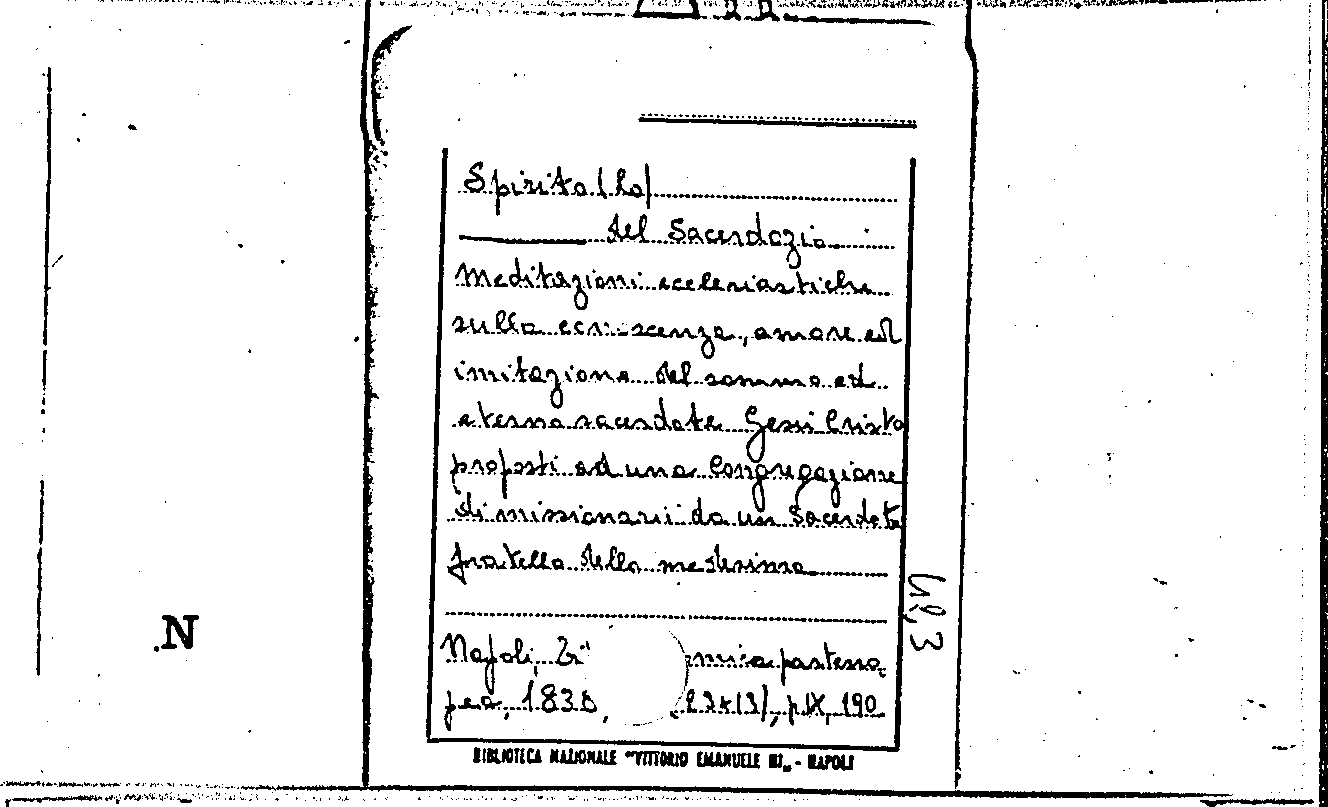 Spirito (Lo)
del Sacerdozio
Meditazioni ecclesiastiche
sulla scenza, amore ed
imitazione del sommo ed
eterno sacerdote Gesù Cristo
proposti ad una Congregazione
di missionarii da un Sacerdote
fratello della medesima
Napoli,
pea, 1838, p. IX, 190
BIBLIOTECA NAZIONALE "VITTORIO EMANUELE III" - NAPOLI
.N